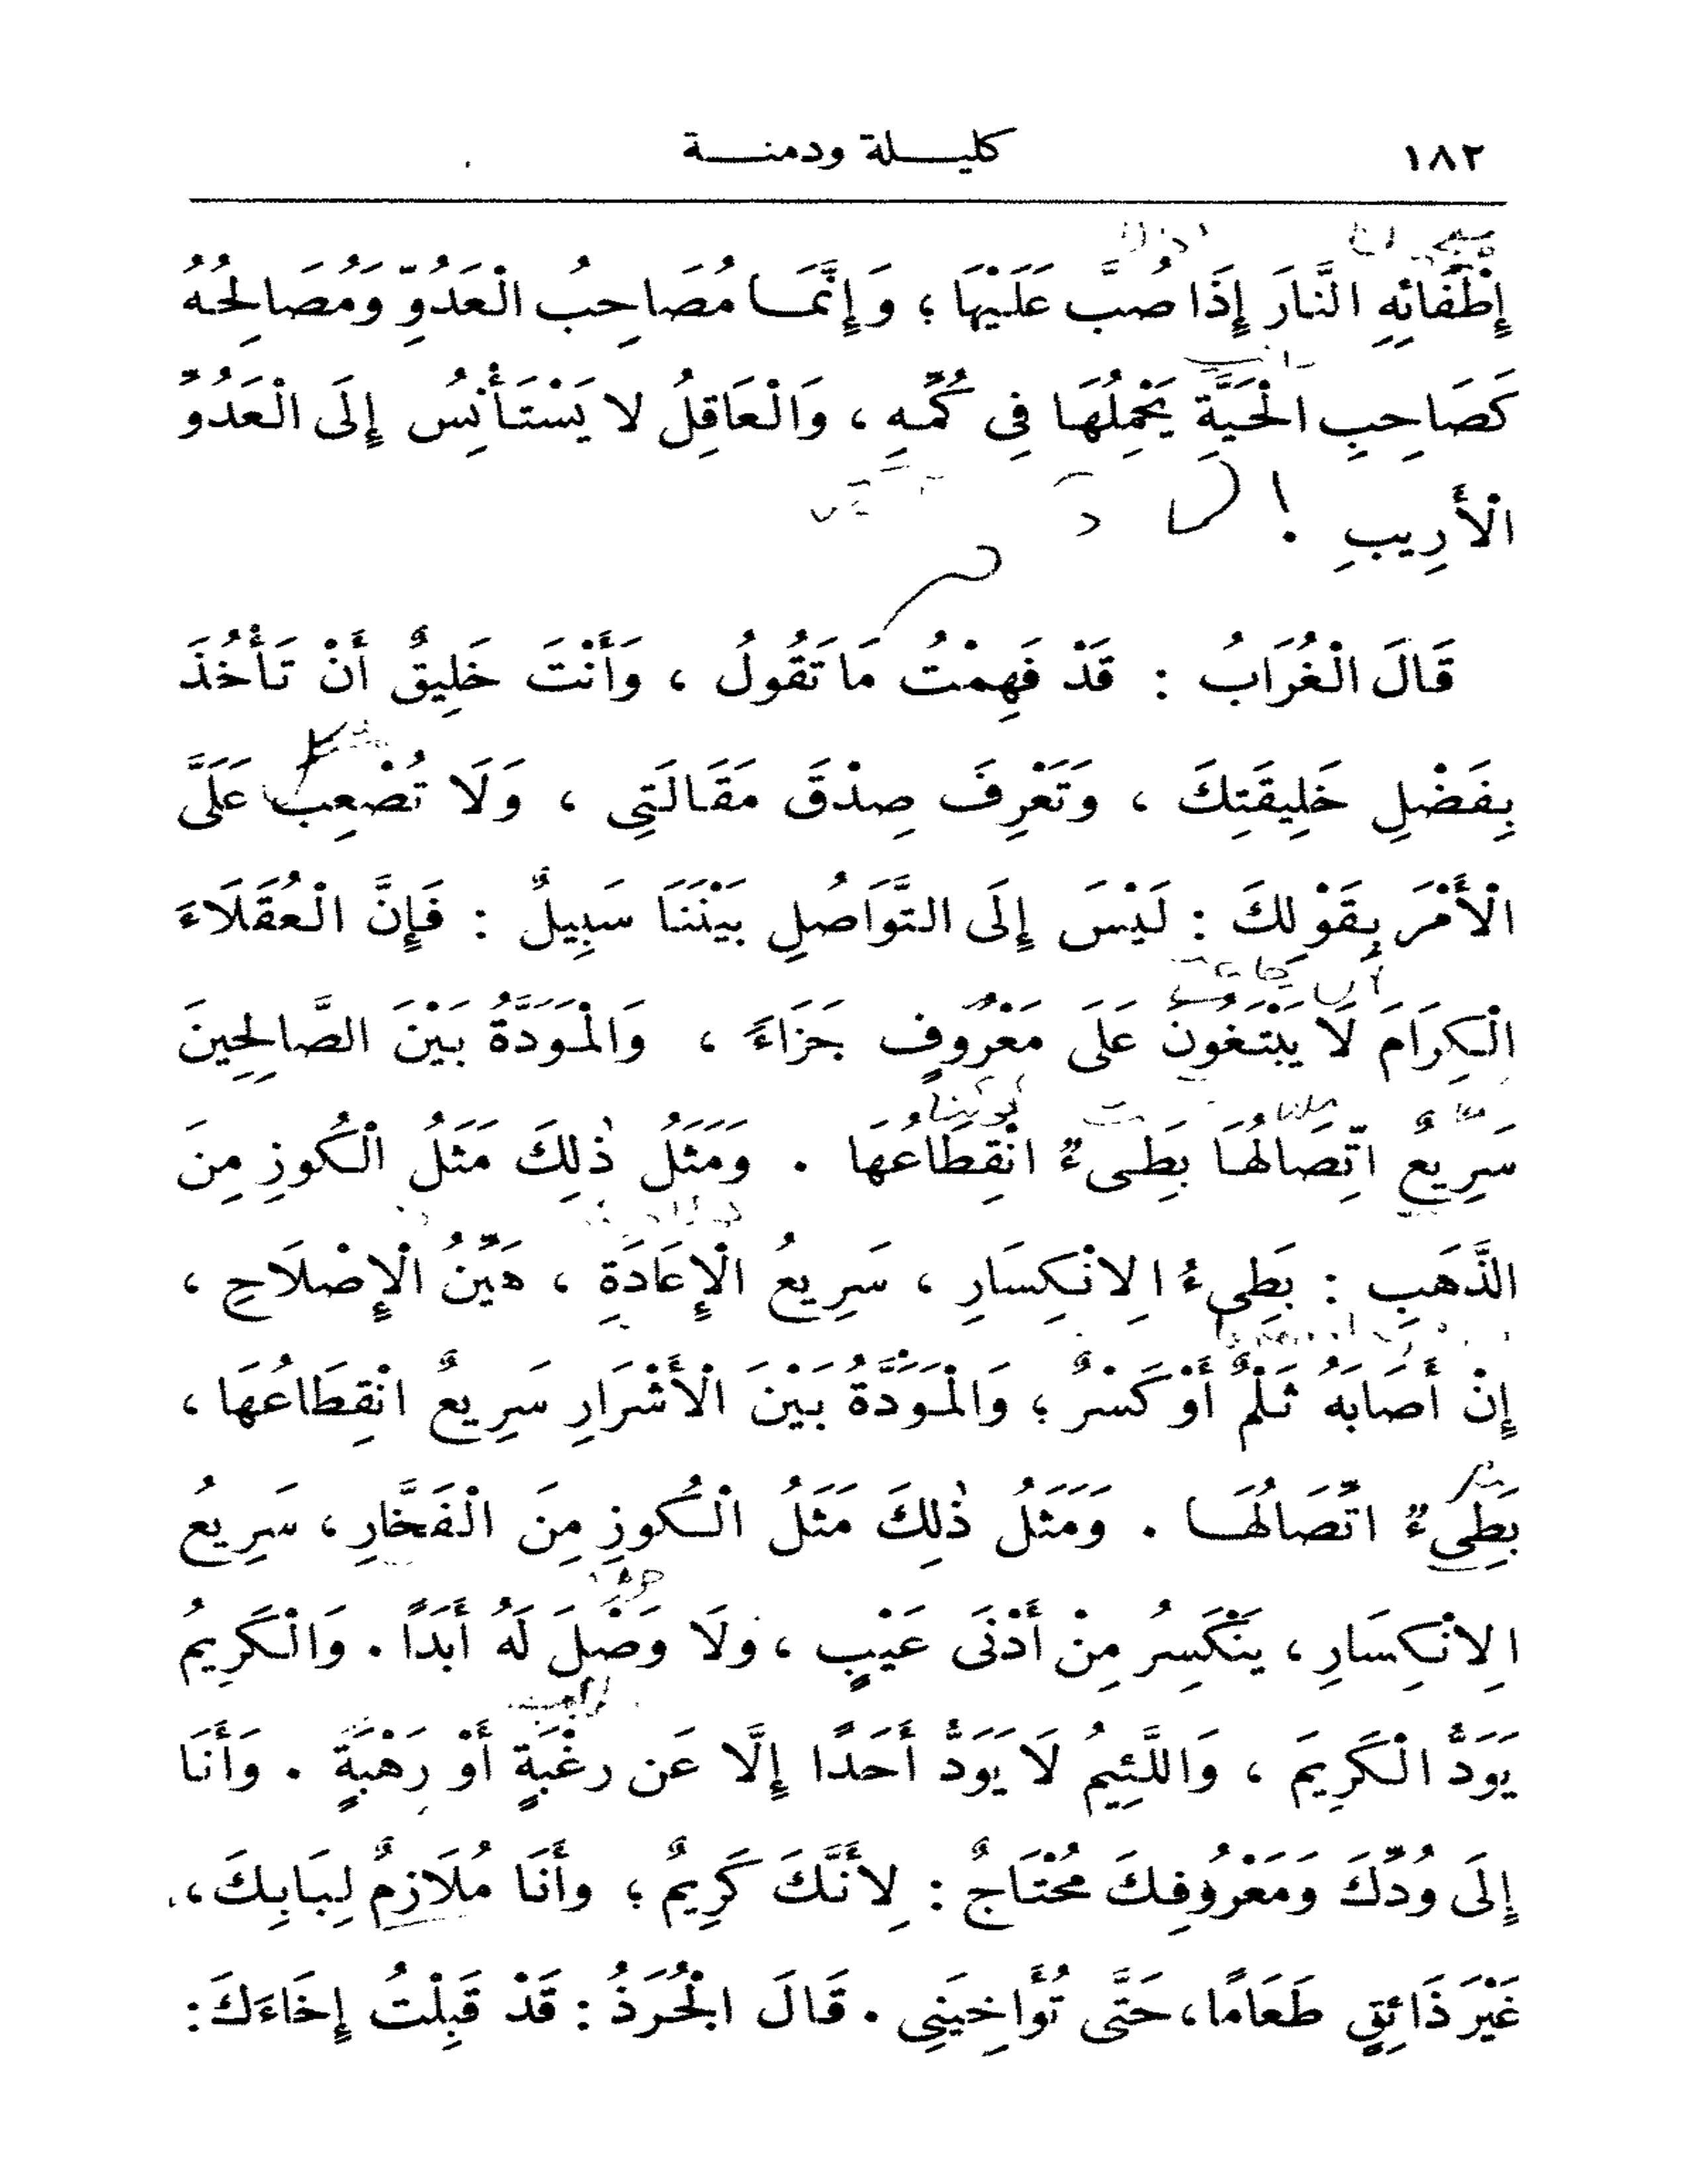 ١٨٢
كليلة ودمنة
إِطْفَائِهِ النَّارَ إِذَا صُبَّ عَلَيْهَا ؛ وَإِنَّمَا مُصَاحِبُ الْعَدُوِّ وَمُصَالِحُهُ
كَصَاحِبِ الْحَيَّةِ يَحْمِلُهَا فِى كُمِّهِ ، وَالْعَاقِلُ لا يَسْتَأْنِسُ إِلَى الْعَدُوِّ
الْأَرِيبِ .
قَالَ الْغُرَابُ : قَدْ فَهِمْتُ مَا تَقُولُ ، وَأَنْتَ خَلِيقٌ أَنْ تَأْخُذَ
بِفَضْلِ خَلِيقَتِكَ ، وَتَعْرِفَ صِدْقَ مَقَالَتِى ، وَلَا تُصْعِب عَلَىَّ
الْأَمْرَ بِقَوْلِكَ : لَيْسَ إِلَى التَّوَاصُلِ بَيْنَنَا سَبِيلٌ : فَإِنَّ الْعُقَلَاءَ
الْكِرَامَ لَا يَبْتَغُونَ عَلَى مَعْرُوفٍ جَزَاءً ، وَالْمَوَدَّةُ بَيْنَ الصَّالِحِينَ
سَرِيعٌ اتِّصَالُهَا بَطِىءٌ انْقِطَاعُهَا . وَمَثَلُ ذٰلِكَ مَثَلُ الْكُوزِ مِنَ
الذَّهَبِ : بَطِىءُ الِانْكِسَارِ ، سَرِيعُ الْإِعَادَةِ ، هَيِّنُ الْإِصْلَاحِ ،
إِنْ أَصَابَهُ ثَلْمٌ أَوْ كَسْرٌ ؛ وَالْمَوَدَّةُ بَيْنَ الْأَشْرَارِ سَرِيعٌ انْقِطَاعُهَا ،
بَطِىءٌ اتِّصَالُهَا . وَمَثَلُ ذٰلِكَ مَثَلُ الْكُوزِ مِنَ الْفَخَّارِ ، سَرِيعُ
الِانْكِسَارِ ، يَنْكَسِرُ مِنْ أَدْنَى عَيْبٍ ، وَلَا وَصْلَ لَهُ أَبَدًا . وَالْكَرِيمُ
يَوَدُّ الْكَرِيمَ ، وَاللَّئِيمُ لَا يَوَدُّ أَحَدًا إِلَّا عَن رغْبَةٍ أَوْ رَهْبَةٍ . وَأَنَا
إِلَى وُدِّكَ وَمَعْرُوفِكَ مُحْتَاجٌ : لِأَنَّكَ كَرِيمٌ ؛ وأَنَا مُلَازِمٌ لِبَابِكَ ،
غَيْرَ ذَائِقٍ طَعَامًا ، حَتَّى تُؤَاخِيَنِى . قَالَ الْجُرَذُ : قَدْ قَبِلْتُ إِخَاءَكَ :